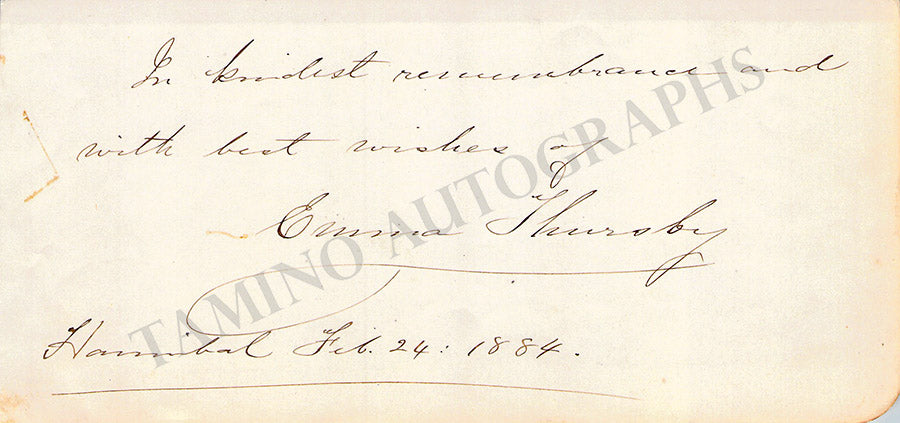 In kindest remembrance and
with best wishes of
Emma Thursby
Hannibal Feb. 24: 1884.
TAMINO AUTOGRAPHS